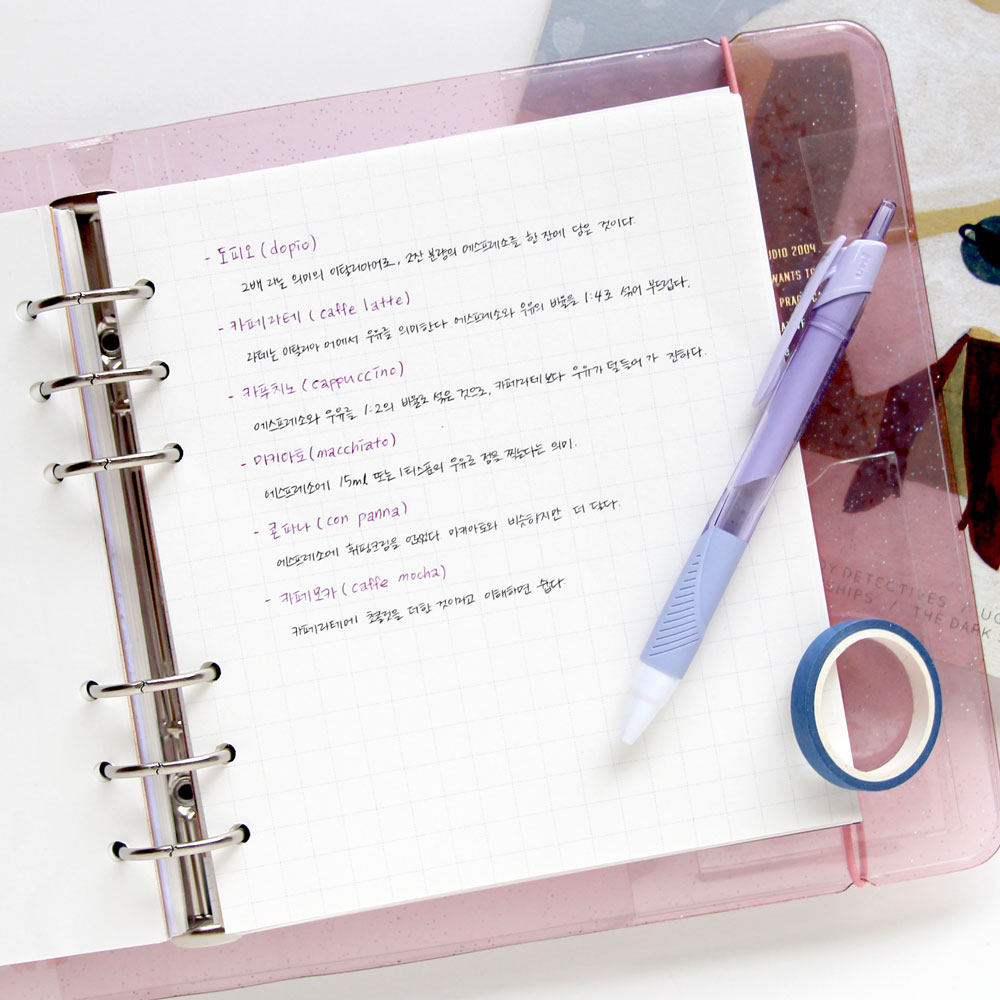 - 도피오 (dopio)
2배 라는 의미의 이탈리아어로, 2잔 분량의 에스프레소를 한 잔에 담은 것이다.
- 카페라테 (caffe latte)
라테는 이탈리아 어에서 우유를 의미한다 에스프레소와 우유의 비율을 1:4로 섞어 부드럽다.
- 카푸치노 (cappuccino)
에스프레소와 우유를 1:2의 비율로 섞은 것으로, 카페라테 보다 우유가 덜 들어가 진하다.
- 마키아토 (macchiato)
에스프레소에 15ml 또는 1티스푼의 우유로 점을 찍는다는 의미.
- 콘파나 (con panna)
에스프레소에 휘핑크림을 얹었다. 마키아토와 비슷하지만 더 달다.
- 카페모카 (caffe mocha)
카페라테에 초콜릿을 더한 것이라고 이해하면 쉽다.
UDIO 2004
WANTS TO
PRAC
DETECTIVES / UG
SHIPS / THE DARK
uni